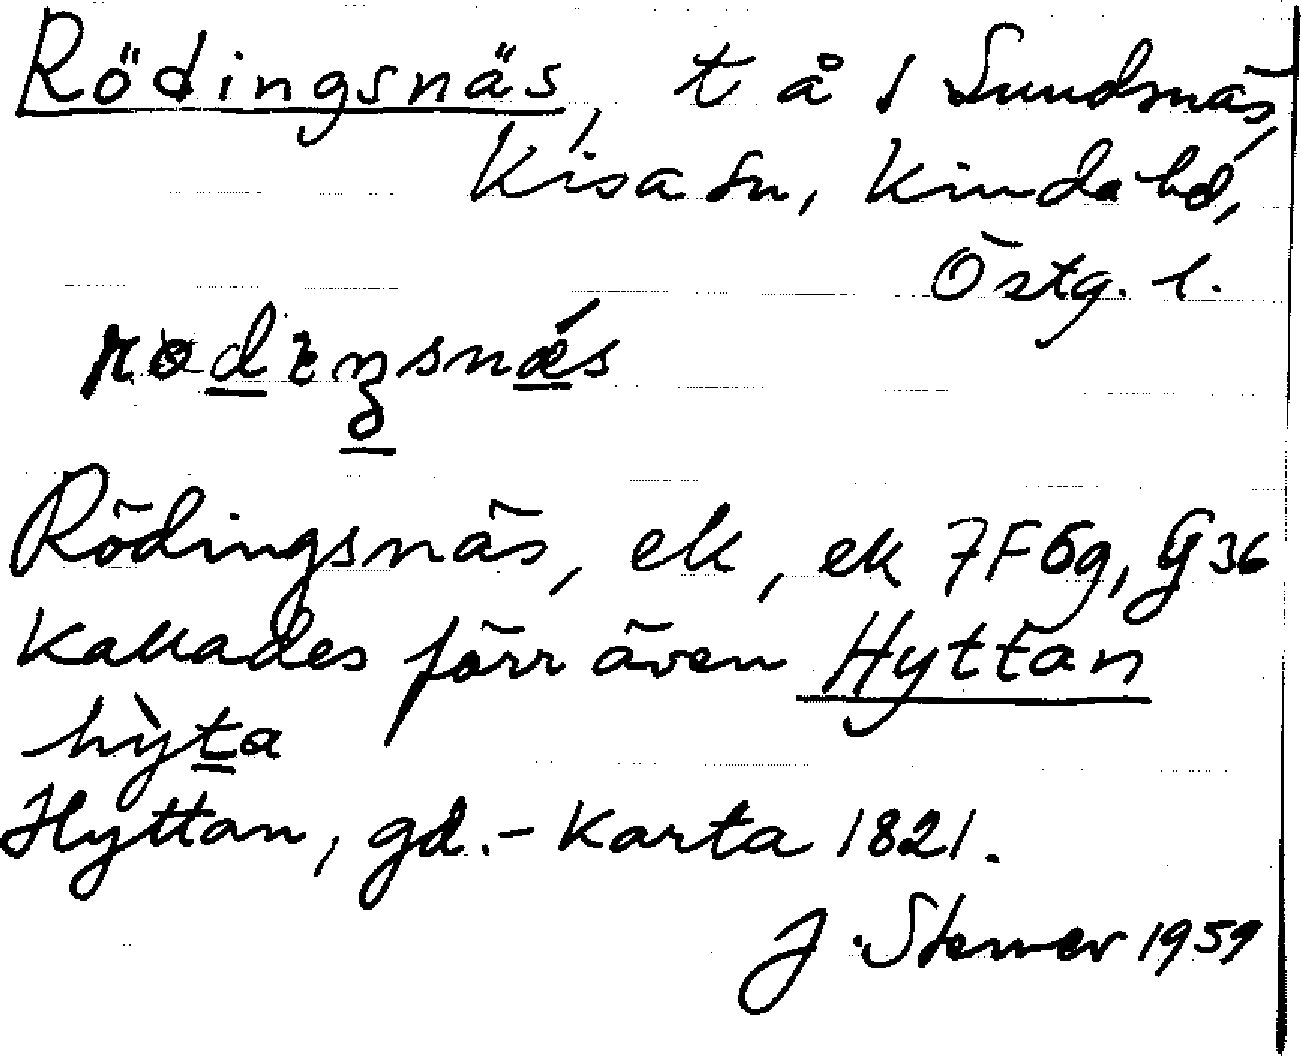 Rödingsnäs, t å 1 Sundsnäs,
Kisa sn, Kinda hd,
Östg. l.
rodıŋsnæ̀s
Rödingsnäs, ek, ek 7F6g, G36
Kallades förr även Hyttan
hỳta
Hyttan, gd. - Karta 1821.
J. Sterner 1959